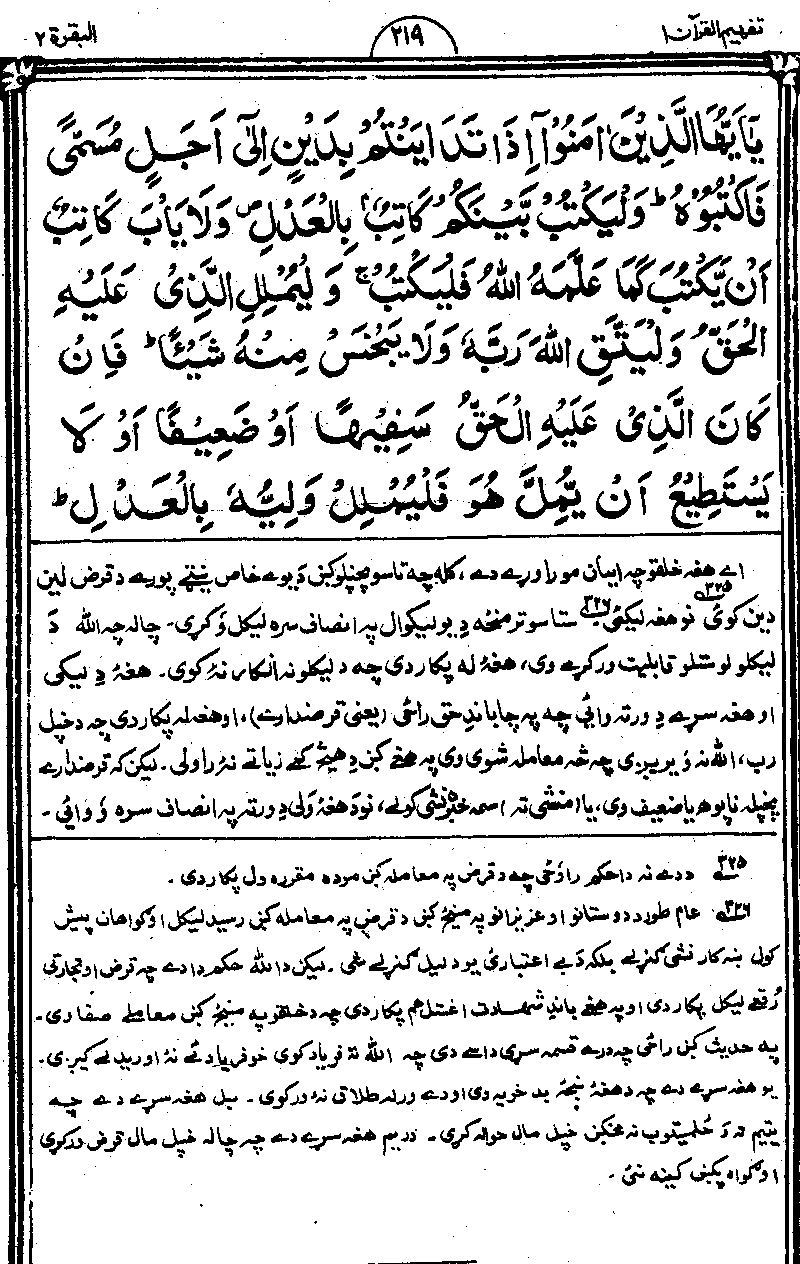 تفہیم القرآن ۱
۲۱۹
البقرة ۲
يٰۤاَيُّهَا الَّذِيْنَ اٰمَنُوْۤا اِذَا تَدَايَنْتُمْ بِدَيْنٍ اِلٰۤى اَجَلٍ مُّسَمًّى
فَاكْتُبُوْهُ ؕ وَلْيَكْتُبْ بَّيْنَكُمْ كَاتِبٌۢ بِالْعَدْلِ ۪ وَلَا يَاْبَ كَاتِبٌ
اَنْ يَّكْتُبَ كَمَا عَلَّمَهُ اللّٰهُ فَلْيَكْتُبْ ۚ وَلْيُمْلِلِ الَّذِىْ عَلَيْهِ
الْحَقُّ وَلْيَتَّقِ اللّٰهَ رَبَّهٗ وَلَا يَبْخَسْ مِنْهُ شَيْئًا ؕ فَاِنْ
كَانَ الَّذِىْ عَلَيْهِ الْحَقُّ سَفِيْهًا اَوْ ضَعِيْفًا اَوْ لَا
يَسْتَطِيْعُ اَنْ يُّمِلَّ هُوَ فَلْيُمْلِلْ وَلِيُّهٗ بِالْعَدْلِ ؕ
اے هغه خلقو چه ايمان مو راوړے دے، كله چه تاسو خپلو كښ د يوے خاص نيټے پورے د قرض لين
دين كوئ ۳۲۵ نو هغه ليكئ ۳۲۶ ستاسو تر منځه دِ يو ليكوال په انصاف سره ليكل وُكړى۔ چاله چه الله دَ
ليكلو لوستلو قابليت وركړے وى، هغۀ له پكار دى چه د ليكلو نه انكار نۀ كوى۔ هغۀ دِ ليكى
او هغه سړے دِ ورته وائى چه په چا باندِ حق راځى (يعنى قرضدارے)، او هغه له پكار دى چه د خپل
رب، الله نه وُيريږى چه څه معامله شوى وى په هغے كښ دِ هيڅ كمے زياتے نۀ راولى۔ ليكن كه قرضدارے
پخپله ناپوهه يا ضعيف وى، يا (منشى ته) سمه خبره نشى كولے، نو د هغۀ ولى دِ ورته په انصاف سره وُوائى۔
۳۲۵ ددے نه دا حكم راوُځى چه د قرض په معامله كښ موده مقرره ول پكار دى۔
۳۲۶ عام طور د دوستانو او عزيزانو په منځ كښ د قرض په معامله كښ رسيد ليكل او ګواهان پيش
كول ښه كار نشى ګڼلے بلكه دَ بے اعتبارئ يو دليل ګڼلے شى۔ ليكن د الله حكم دا دے چه قرض او تجارتى
رُقعے ليكل پكار دى او په هغے باندِ شهادت اغستل هم پكار دى چه د خلقو په منځ كښ معاملے صفا وى۔
په حديث كښ راځى چه درے قسمه سړى داسے دى چه الله ته فرياد كوى خو فرياد ئے نۀ اوريدلے كيږى۔
يو هغه سړے دے چه دهغۀ ښځه بد خويه وى او دے ورله طلاق نه وركوى۔ بل هغه سړے دے چه
يتيم ته دَ بلوغ نه مخكښ خپل مال حواله كړى۔ دريم هغه سړے دے چه چاله خپل مال قرض وركړى
او ګواه پكښ كينه نئ۔